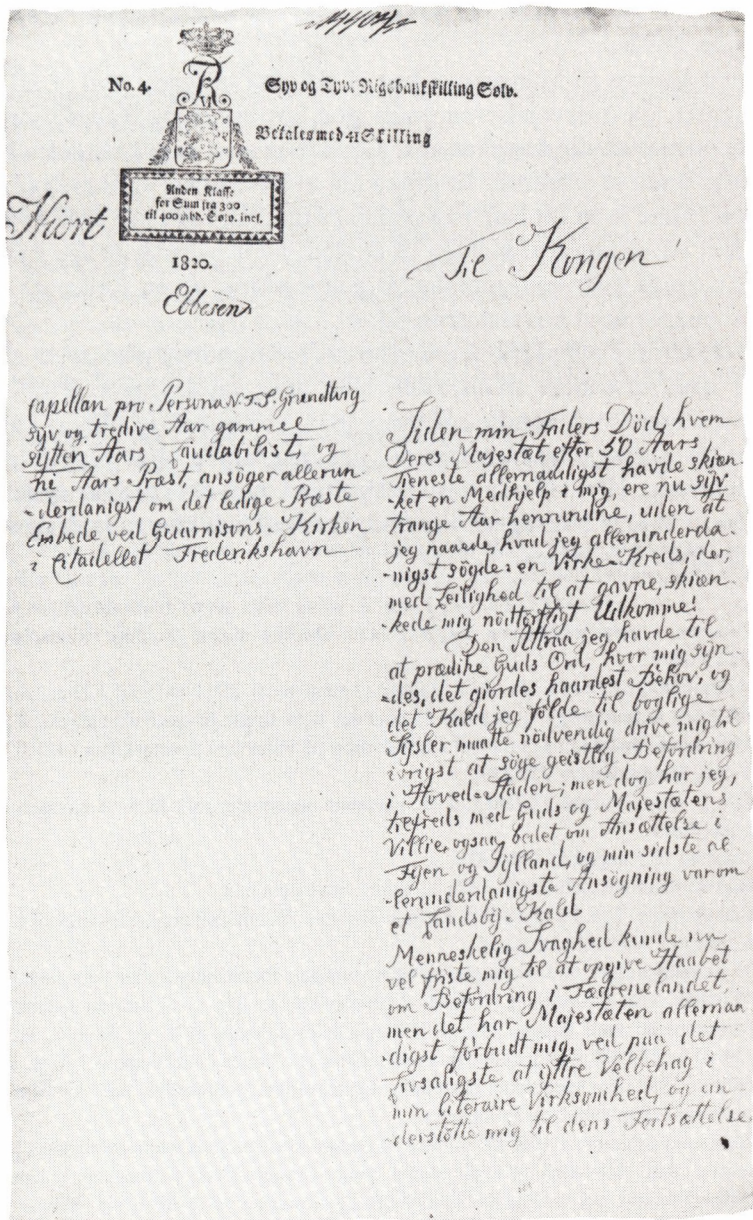 No. 4.
Syv og Tyve Rigsbankskilling Solv.
Betales med 41 Skilling
Anden Klasse
for Sum fra 300
til 400 Rbd. Solv. incl.
Hiort
1820.
Ebbesen
Til Kongen!
Capellan pro Persona N. F. S. Grundtvig
syv og tredive Aar gammel
sytten Aars Laudabilist, og
ni Aars Præst, ansöger allerun
-derdanigst om det ledige Præste
Embede ved Guarnisons-Kirken
i Citadellet Frederikshavn
Siden min Faders Död, hvem
Deres Majestæt, efter 50 Aars
Tieneste allernaadigst havde skiæn
ket en Medhjelp i mig, ere nu syv
trange Aar henrundne, uden at
jeg naaede, hvad jeg allerunderda
-nigst sögde: en Virke-Kreds, der,
med Leilighed til at gavne, skiæn
-kede mig nödtörftigt Udkomme!
Den Attraa jeg havde til
at prædike Guds Ord, hvor mig syn
-des, det giordes haardest Behov, og
det Kald jeg földe til boglige
Sysler maatte nödvendig drive mig til
ivrigst at söge geistlig Befordring
i Hoved-Staden; men dog har jeg,
tilfreds med Guds og Majestætens
Villie, ogsaa bedet om Ansættelse i
Fyen og Jylland, og min sidste al
-lerunderdanigste Ansögning var om
et Landsby-Kald
Menneskelig Svaghed kunde nu
vel friste mig til at opgive Haabet
om Befordring i Fædrenelandet,
men det har Majestæten allernaa
-digst forbudt mig, ved paa det
Livsaligste at yttre Velbehag i
min literaire Virksomhed, og un
-derstötte mig til dens Fortsættelse